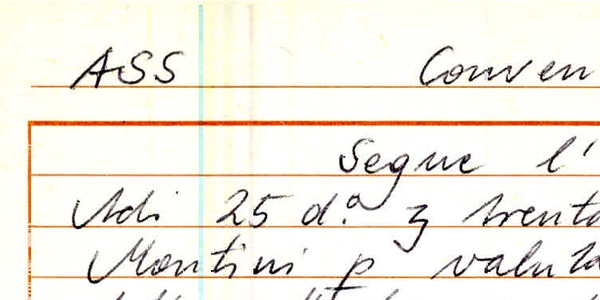 ASS Conven
Segue l'
Adi 25 d.º ʒ trenta
Montini p valuta